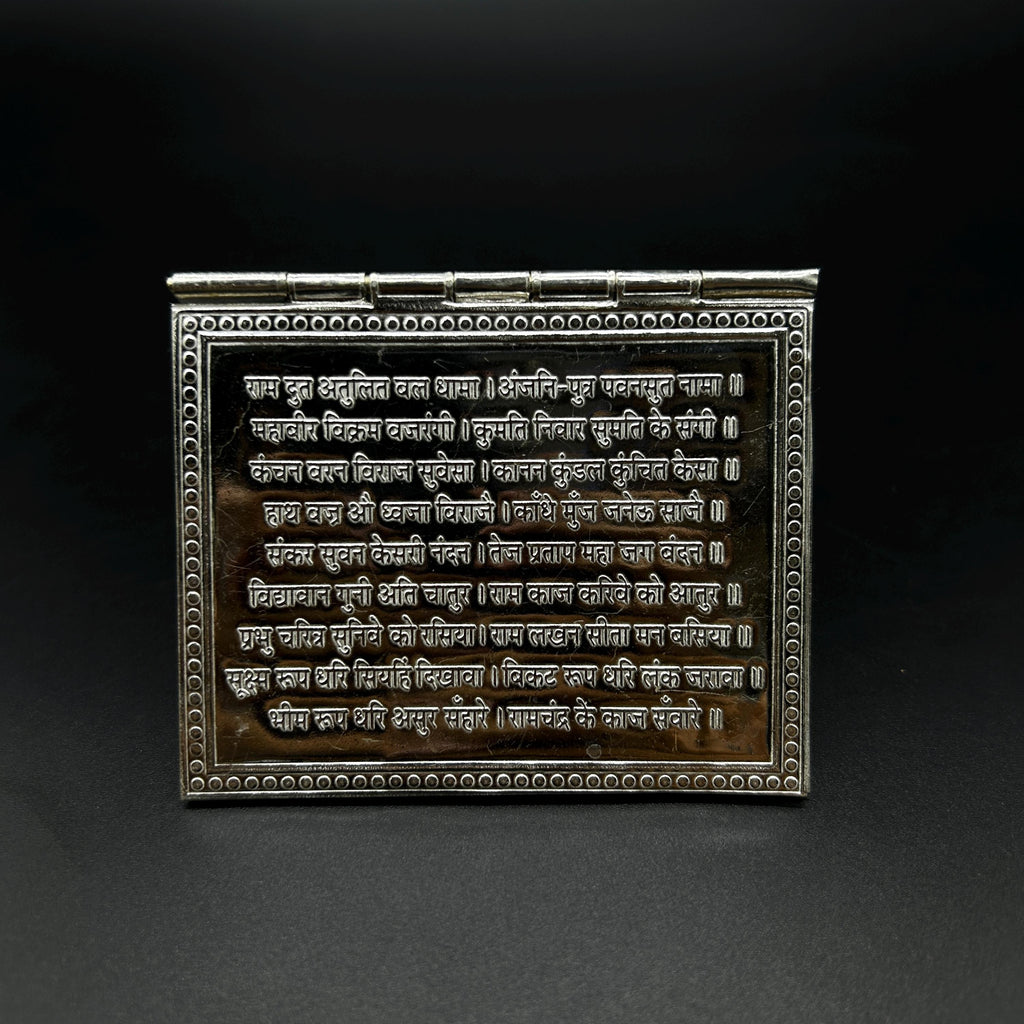 राम दुत अतुलित वल धामा । अंजनि-पुत्र पवनसुत नामा ॥
महाबीर विक्रम वजरंगी । कुमति निवार सुमति के संगी ॥
कंचन वरन विराज सुवेसा । कानन कुंडल कुंचित केसा ॥
हाथ वज्र औ ध्वजा विराजै । काँधे मुँज जनेऊ साजै ॥
संकर सुवन केसरी नंदन । तेज प्रताप महा जग बंदन ॥
विद्यावान गुनी अति चातुर । राम काज करिवे को आतुर ॥
प्रभु चरित्र सुनिवे को रसिया । राम लखन सीता मन बसिया ॥
सूक्ष्म रूप धरि सियहिं दिखावा । बिकट रूप धरि लंक जरावा ॥
भीम रूप धरि असुर सँहारे । रामचंद्र के काज सँवारे ॥